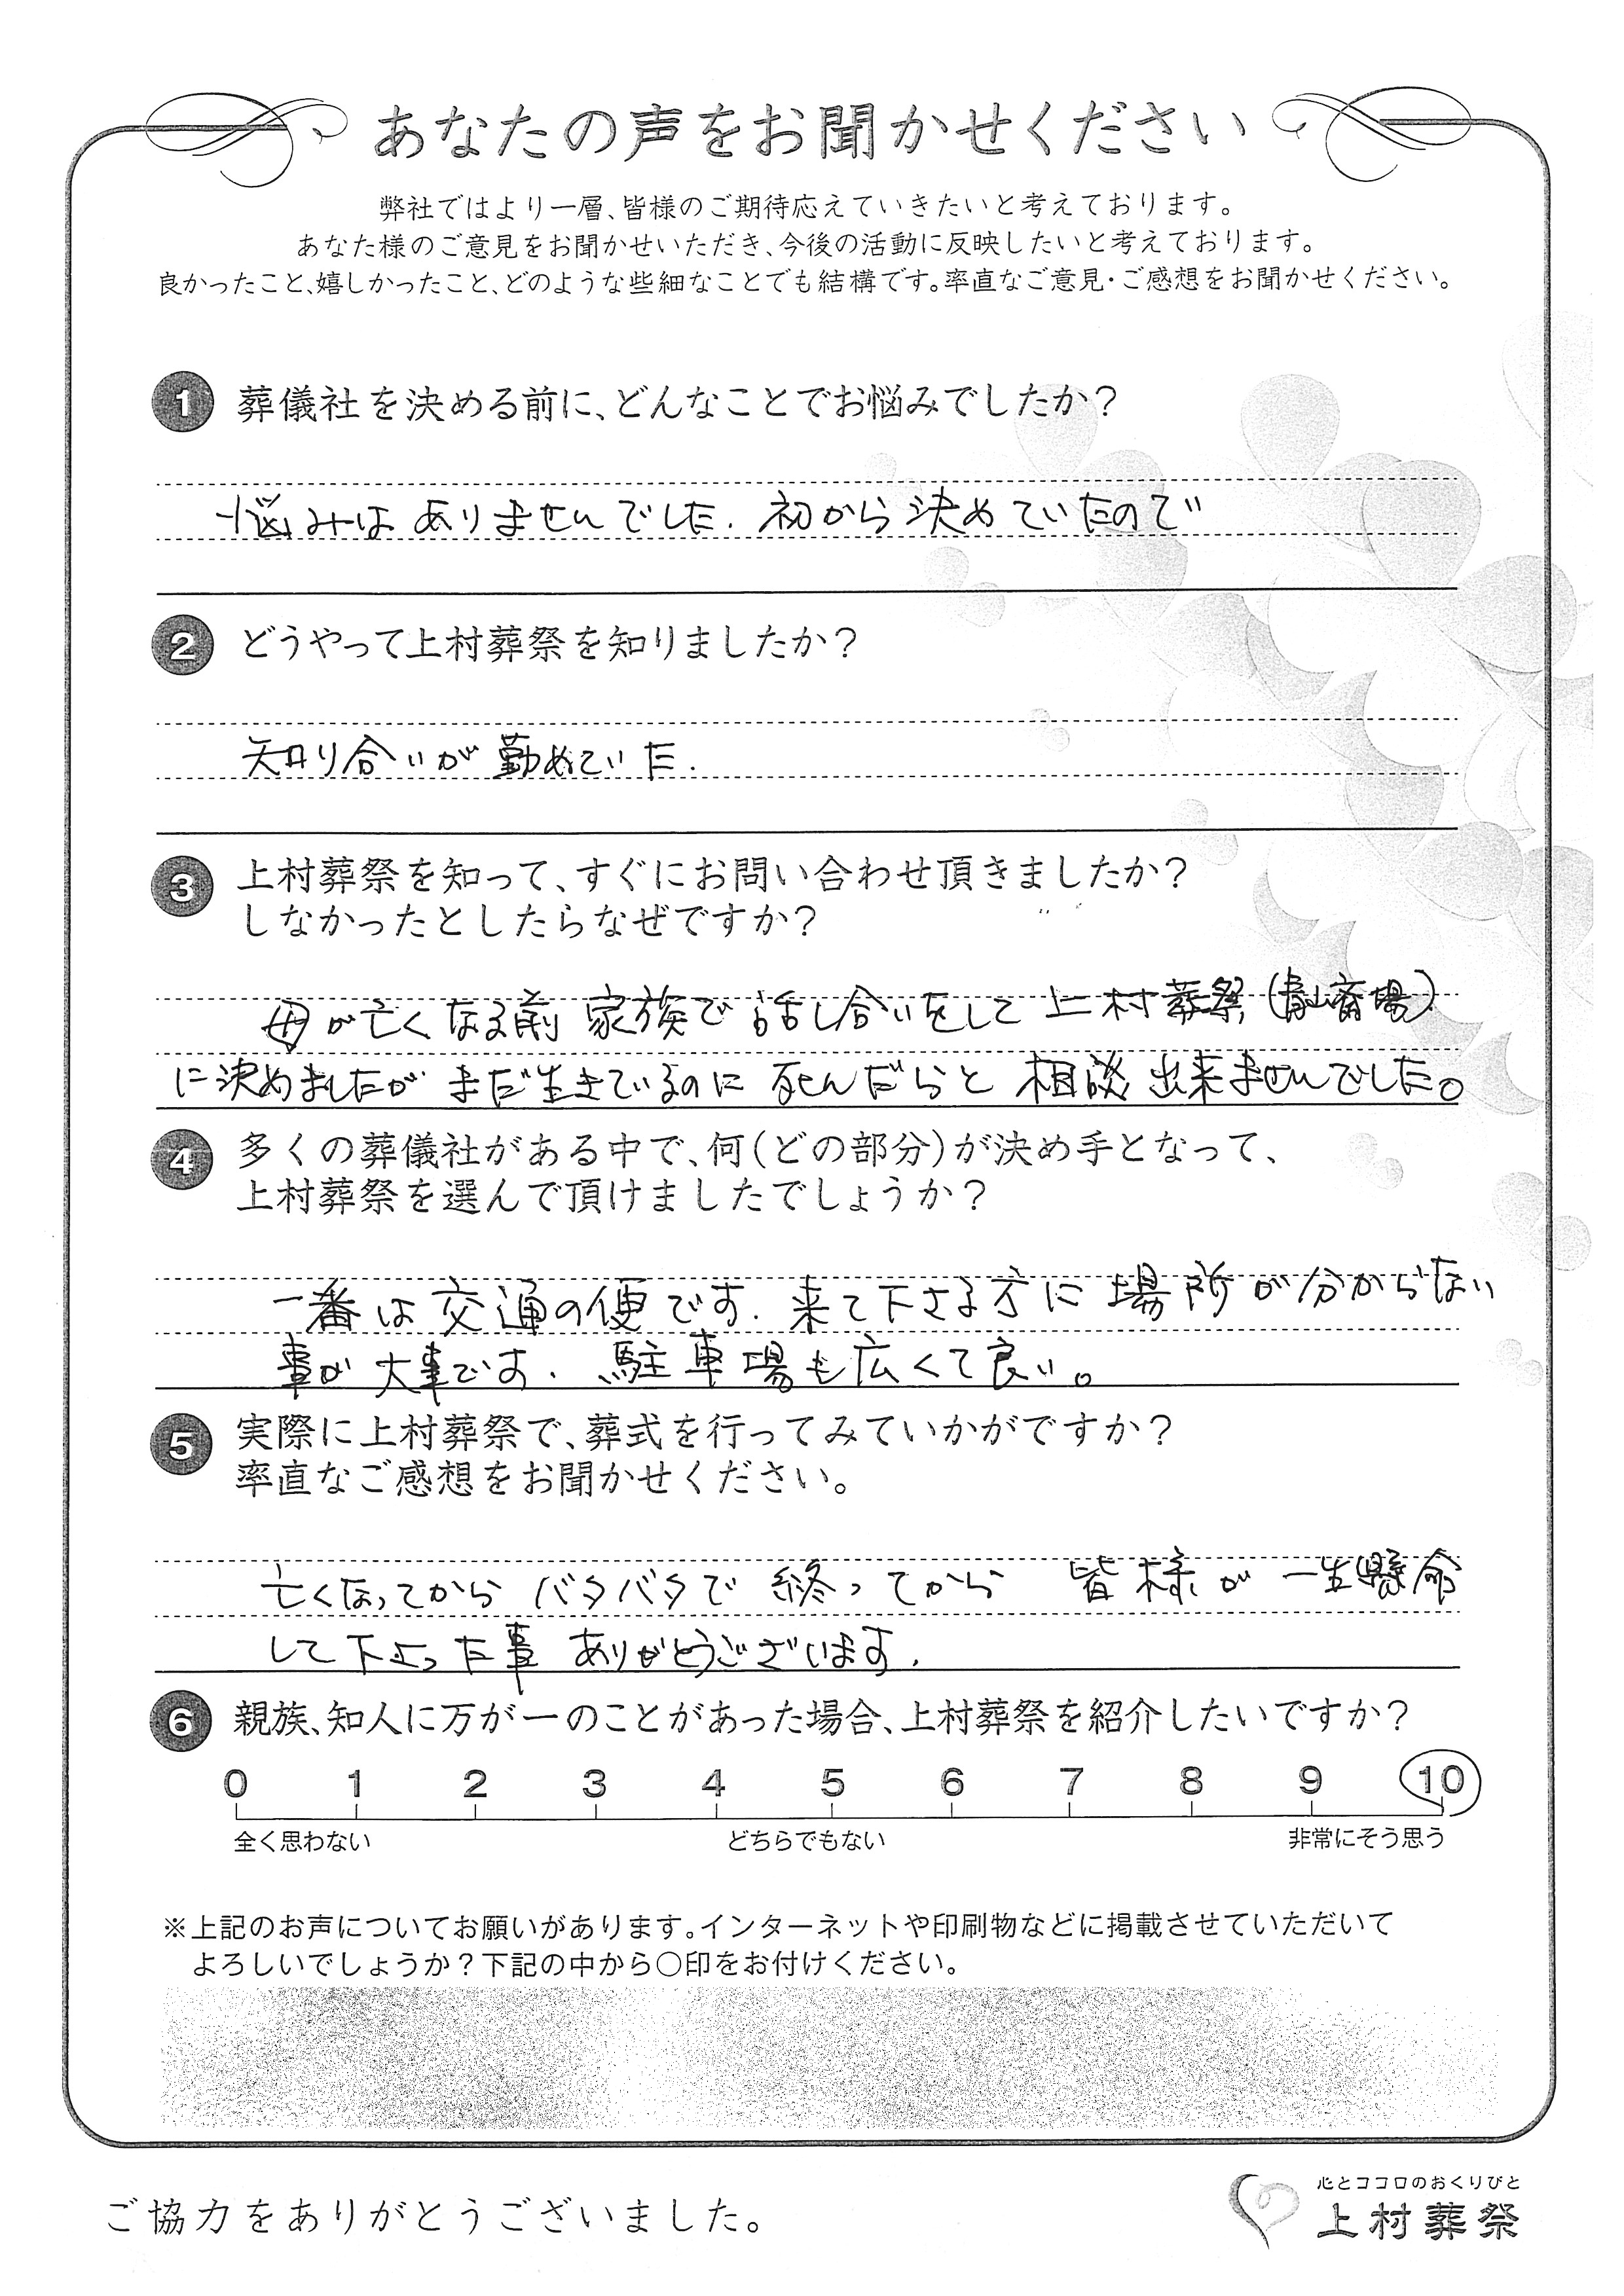 あなたの声をお聞かせください
弊社ではより一層、皆様のご期待応えていきたいと考えております。
あなた様のご意見をお聞かせいただき、今後の活動に反映したいと考えております。
良かったこと、嬉しかったこと、どのような些細なことでも結構です。率直なご意見・ご感想をお聞かせください。
1 葬儀社を決める前に、どんなことでお悩みでしたか？
悩みはありませんでした. 初から決めていたので
2 どうやって上村葬祭を知りましたか？
知り合いが勤めていた.
3 上村葬祭を知って、すぐにお問い合わせ頂きましたか？
しなかったとしたらなぜですか？
母が亡くなる前 家族で話し合いをして 上村葬祭(青山斎場)
に決めましたが まだ生きているのに 死んだらと 相談 出来ませんでした。
4 多くの葬儀社がある中で、何（どの部分）が決め手となって、
上村葬祭を選んで頂けましたでしょうか？
一番は交通の便です. 来て下さる方に 場所が分からない
事が 大事です. 駐車場も広くて良い。
5 実際に上村葬祭で、葬式を行ってみていかがですか？
率直なご感想をお聞かせください。
亡くなってから バタバタで 終ってから 皆様が 一生懸命
して下さった事 ありがとうございます.
6 親族、知人に万が一のことがあった場合、上村葬祭を紹介したいですか？
0 1 2 3 4 5 6 7 8 9 10
全く思わない どちらでもない 非常にそう思う
※上記のお声についてお願いがあります。インターネットや印刷物などに掲載させていただいて
よろしいでしょうか？下記の中から○印をお付けください。
心とココロのおくりびと
ご協力をありがとうございました。
上村葬祭